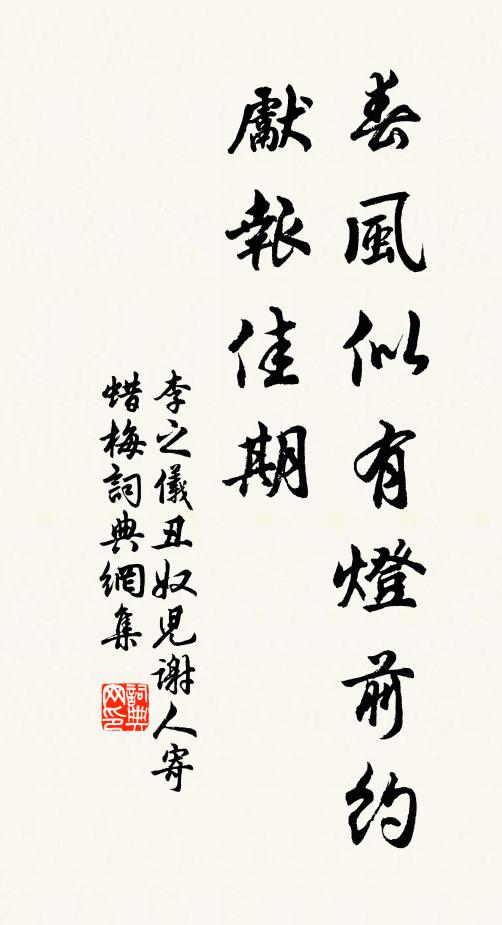 春風似有燈前約
獻報佳期
李之儀丑奴兒謝人寄
蜡梅詞典網集
詞典網印